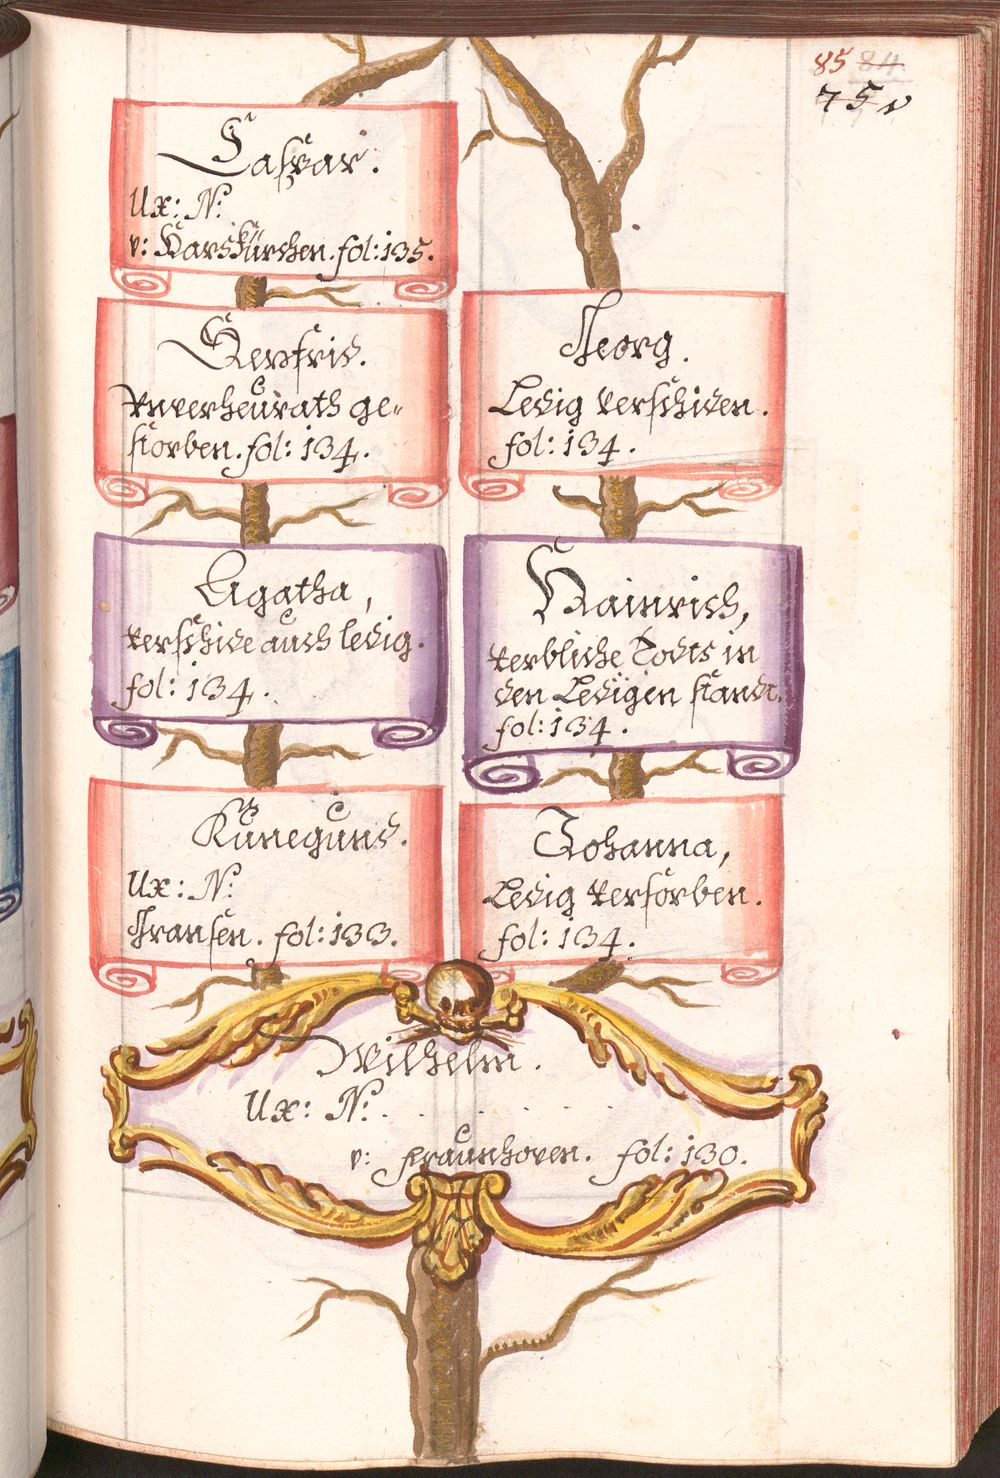 85 84
75 v
Caspar.
Ux: N:
v: Harskürchen. fol: 135.
Seyfrid.
Vnverheurath ge-
storben. fol: 134.
Georg.
Ledig verschiden.
fol: 134.
Agatha,
verschide auch ledig.
fol: 134.
Hainrich,
verbliche Todts in
den Ledigen standt.
fol: 134.
Künegund.
Ux: N:
Fransen. fol: 133.
Johanna,
Ledig verstorben.
fol: 134.
Wilhelm.
Ux: N:
v: fraunhoven. fol: 130.